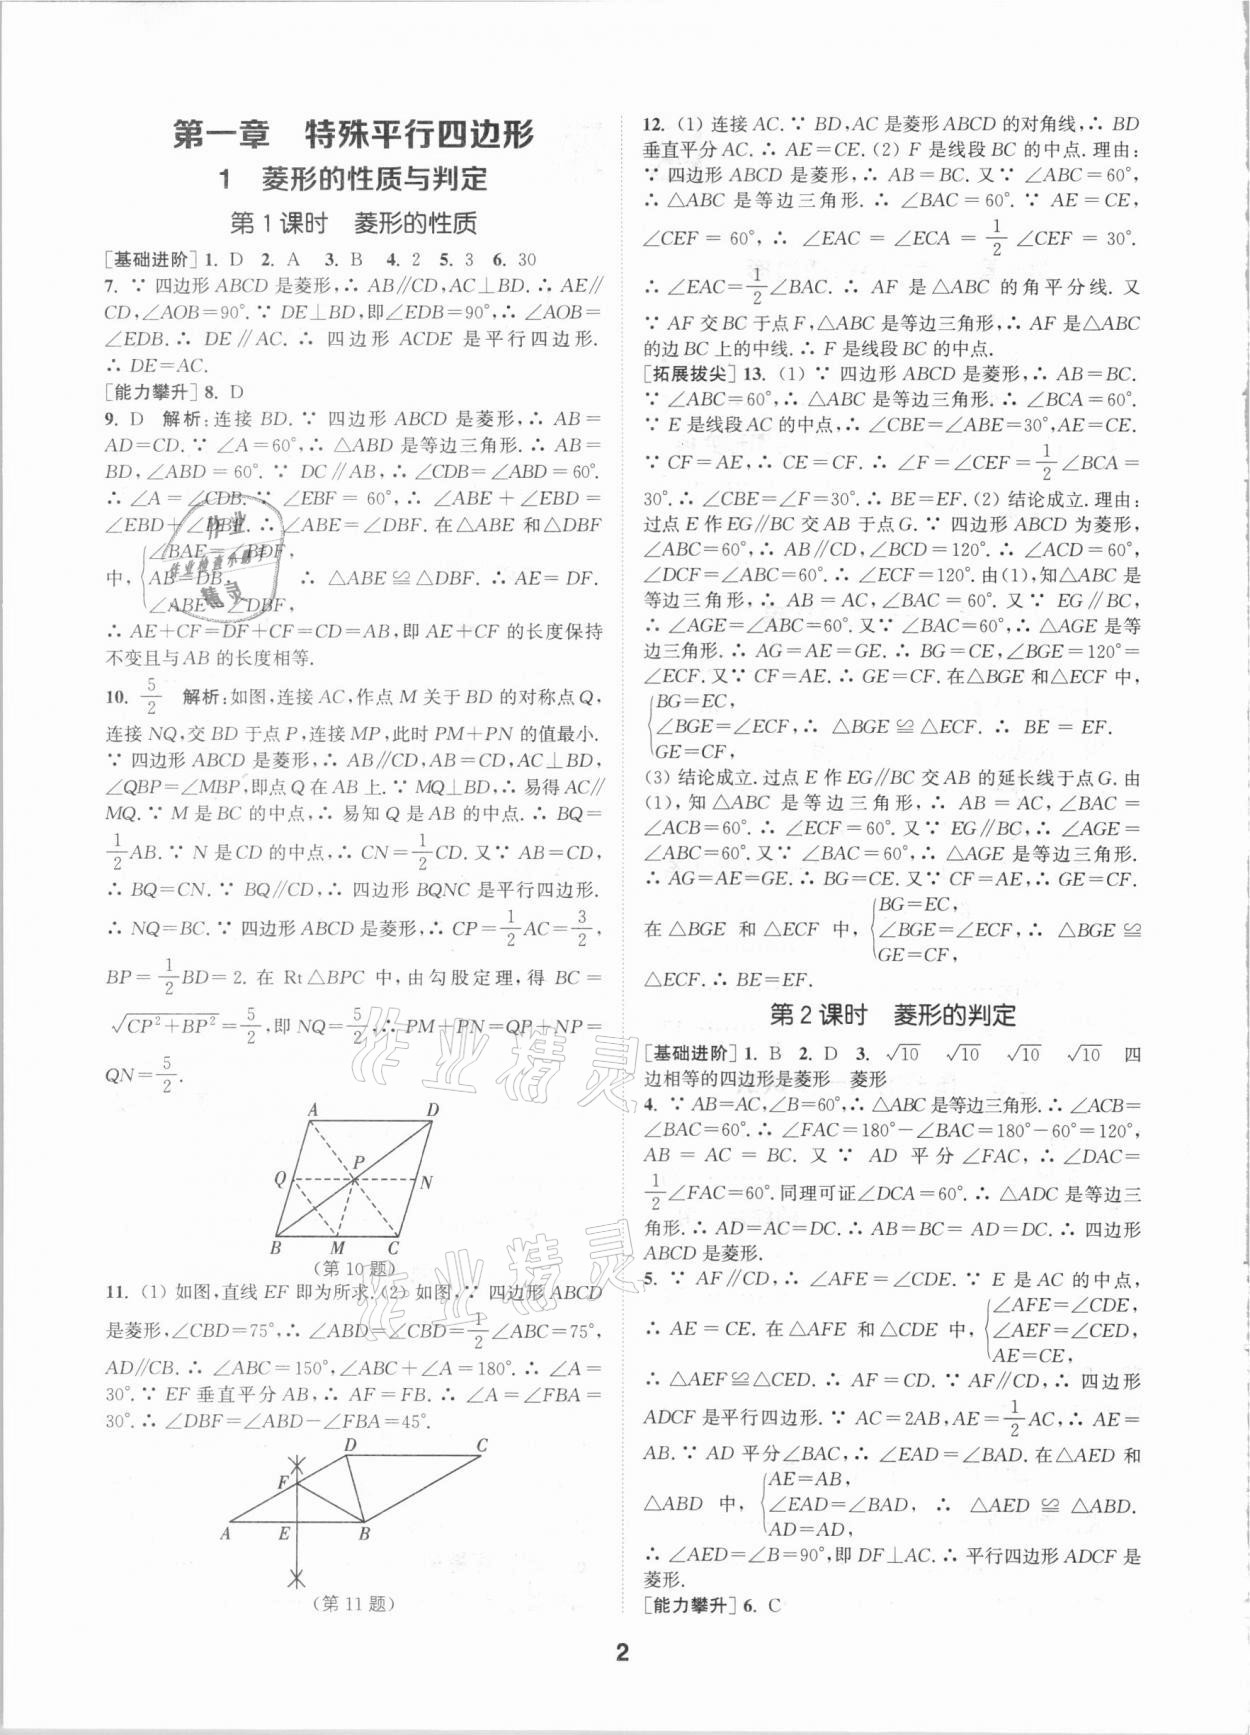 第一章　特殊平行四边形
1　菱形的性质与判定
第1课时　菱形的性质
[基础进阶] 1. D　2. A　3. B　4. 2　5. 3　6. 30
7. ∵ 四边形 ABCD 是菱形,∴ AB∥CD,AC⊥BD.∴ AE∥
CD,∠AOB=90°.∵ DE⊥BD,即∠EDB=90°,∴ ∠AOB=
∠EDB.∴ DE∥AC.∴ 四边形 ACDE 是平行四边形.
∴ DE=AC.
[能力攀升] 8. D
9. D　解析:连接 BD.∵ 四边形 ABCD 是菱形,∴ AB=
AD=CD.∵ ∠A=60°,∴ △ABD 是等边三角形.∴ AB=
BD,∠ABD=60°.∵ DC∥AB,∴ ∠CDB=∠ABD=60°.
∴ ∠A=∠CDB.∵ ∠EBF=60°,∴ ∠ABE+∠EBD=
∠EBD+∠DBF.∴ ∠ABE=∠DBF.在△ABE 和△DBF
中,{∠BAE=∠BDF, AB=DB, ∠ABE=∠DBF,　∴ △ABE≌△DBF.∴ AE=DF.
∴ AE+CF=DF+CF=CD=AB,即 AE+CF 的长度保持
不变且与AB 的长度相等.
10. 5/2　解析:如图,连接 AC,作点 M 关于 BD 的对称点 Q,
连接 NQ,交 BD 于点 P,连接 MP,此时 PM+PN 的值最小.
∵ 四边形 ABCD 是菱形,∴ AB∥CD,AB=CD,AC⊥BD,
∠QBP=∠MBP,即点 Q 在 AB 上.∵ MQ⊥BD,∴ 易得 AC∥
MQ.∵ M 是 BC 的中点,∴ 易知 Q 是 AB 的中点.∴ BQ=
1/2AB.∵ N 是 CD 的中点,∴ CN=1/2CD.又∵ AB=CD,
∴ BQ=CN.∵ BQ∥CD,∴ 四边形 BQNC 是平行四边形.
∴ NQ=BC.∵ 四边形 ABCD 是菱形,∴ CP=1/2AC=3/2,
BP=1/2BD=2.在 Rt△BPC 中,由勾股定理,得 BC=
√(CP²+BP²)=5/2,即 NQ=5/2,∴ PM+PN=QP+NP=
QN=5/2.
A　D
P
Q　N
B　M　C
(第10题)
11. (1) 如图,直线 EF 即为所求.(2) 如图,∵ 四边形 ABCD
是菱形,∠CBD=75°,∴ ∠ABD=∠CBD=1/2∠ABC=75°,
AD∥CB.∴ ∠ABC=150°,∠ABC+∠A=180°.∴ ∠A=
30°.∵ EF 垂直平分 AB,∴ AF=FB.∴ ∠A=∠FBA=
30°.∴ ∠DBF=∠ABD-∠FBA=45°.
D　C
F
A　E　B
(第11题)
12. (1) 连接 AC.∵ BD,AC 是菱形 ABCD 的对角线,∴ BD
垂直平分 AC.∴ AE=CE.(2) F 是线段 BC 的中点.理由:
∵ 四边形 ABCD 是菱形,∴ AB=BC.又∵ ∠ABC=60°,
∴ △ABC 是等边三角形.∴ ∠BAC=60°.∵ AE=CE,
∠CEF=60°,∴ ∠EAC=∠ECA=1/2∠CEF=30°.
∴ ∠EAC=1/2∠BAC.∴ AF 是△ABC 的角平分线.又
∵ AF 交 BC 于点 F,△ABC 是等边三角形,∴ AF 是△ABC
的边 BC 上的中线.∴ F 是线段 BC 的中点.
[拓展拔尖] 13. (1) ∵ 四边形 ABCD 是菱形,∴ AB=BC.
∵ ∠ABC=60°,∴ △ABC 是等边三角形.∴ ∠BCA=60°.
∵ E 是线段 AC 的中点,∴ ∠CBE=∠ABE=30°,AE=CE.
∵ CF=AE,∴ CE=CF.∴ ∠F=∠CEF=1/2∠BCA=
30°.∴ ∠CBE=∠F=30°.∴ BE=EF.(2) 结论成立.理由:
过点 E 作 EG∥BC 交 AB 于点 G.∵ 四边形 ABCD 为菱形,
∠ABC=60°,∴ AB∥CD,∠BCD=120°.∴ ∠ACD=60°,
∠DCF=∠ABC=60°.∴ ∠ECF=120°.由(1),知△ABC 是
等边三角形,∴ AB=AC,∠BAC=60°.又∵ EG∥BC,
∴ ∠AGE=∠ABC=60°.又∵ ∠BAC=60°,∴ △AGE 是等
边三角形.∴ AG=AE=GE.∴ BG=CE,∠BGE=120°=
∠ECF.又∵ CF=AE.∴ GE=CF.在△BGE 和△ECF 中,
{BG=EC, ∠BGE=∠ECF, GE=CF,　∴ △BGE≌△ECF.∴ BE=EF.
(3) 结论成立.过点 E 作 EG∥BC 交 AB 的延长线于点 G.由
(1),知△ABC 是等边三角形,∴ AB=AC,∠BAC=
∠ACB=60°.∴ ∠ECF=60°.又∵ EG∥BC,∴ ∠AGE=
∠ABC=60°.又∵ ∠BAC=60°,∴ △AGE 是等边三角形.
∴ AG=AE=GE.∴ BG=CE.又∵ CF=AE,∴ GE=CF.
在△BGE 和△ECF 中,{BG=EC, ∠BGE=∠ECF, GE=CF,∴ △BGE≌
△ECF.∴ BE=EF.
第2课时　菱形的判定
[基础进阶] 1. B　2. D　3. √10　√10　√10　√10　四
边相等的四边形是菱形　菱形
4. ∵ AB=AC,∠B=60°,∴ △ABC 是等边三角形.∴ ∠ACB=
∠BAC=60°.∴ ∠FAC=180°-∠BAC=180°-60°=120°,
AB=AC=BC.又∵ AD 平分∠FAC,∴ ∠DAC=
1/2∠FAC=60°.同理可证∠DCA=60°.∴ △ADC 是等边三
角形.∴ AD=AC=DC.∴ AB=BC=AD=DC.∴ 四边形
ABCD 是菱形.
5. ∵ AF∥CD,∴ ∠AFE=∠CDE.∵ E 是 AC 的中点,
∴ AE=CE.在△AFE 和△CDE 中,{∠AFE=∠CDE, ∠AEF=∠CED, AE=CE,
∴ △AEF≌△CED.∴ AF=CD.∵ AF∥CD,∴ 四边形
ADCF 是平行四边形.∵ AC=2AB,AE=1/2AC,∴ AE=
AB.∵ AD 平分∠BAC,∴ ∠EAD=∠BAD.在△AED 和
△ABD 中,{AE=AB, ∠EAD=∠BAD, AD=AD,　∴ △AED≌△ABD.
∴ ∠AED=∠B=90°,即 DF⊥AC.∴ 平行四边形 ADCF 是
菱形.
[能力攀升] 6. C
2
作业精灵
作业精灵
作业
作业检查小助手
精灵